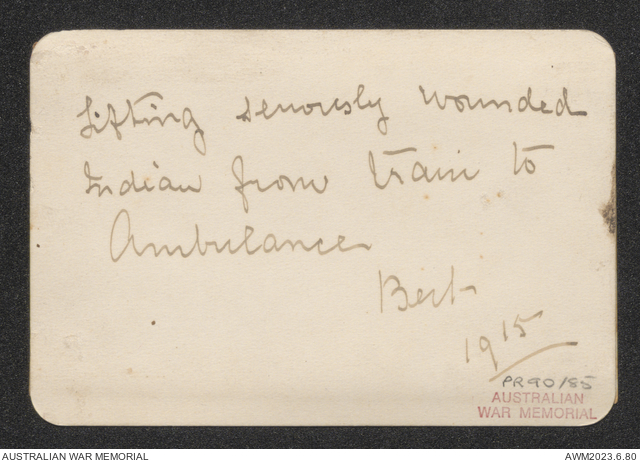 Lifting seriously wounded
Indian from train to
Ambulance
Bert
1915
PR90/85
AUSTRALIAN
WAR MEMORIAL
AUSTRALIAN WAR MEMORIAL
AWM2023.6.80